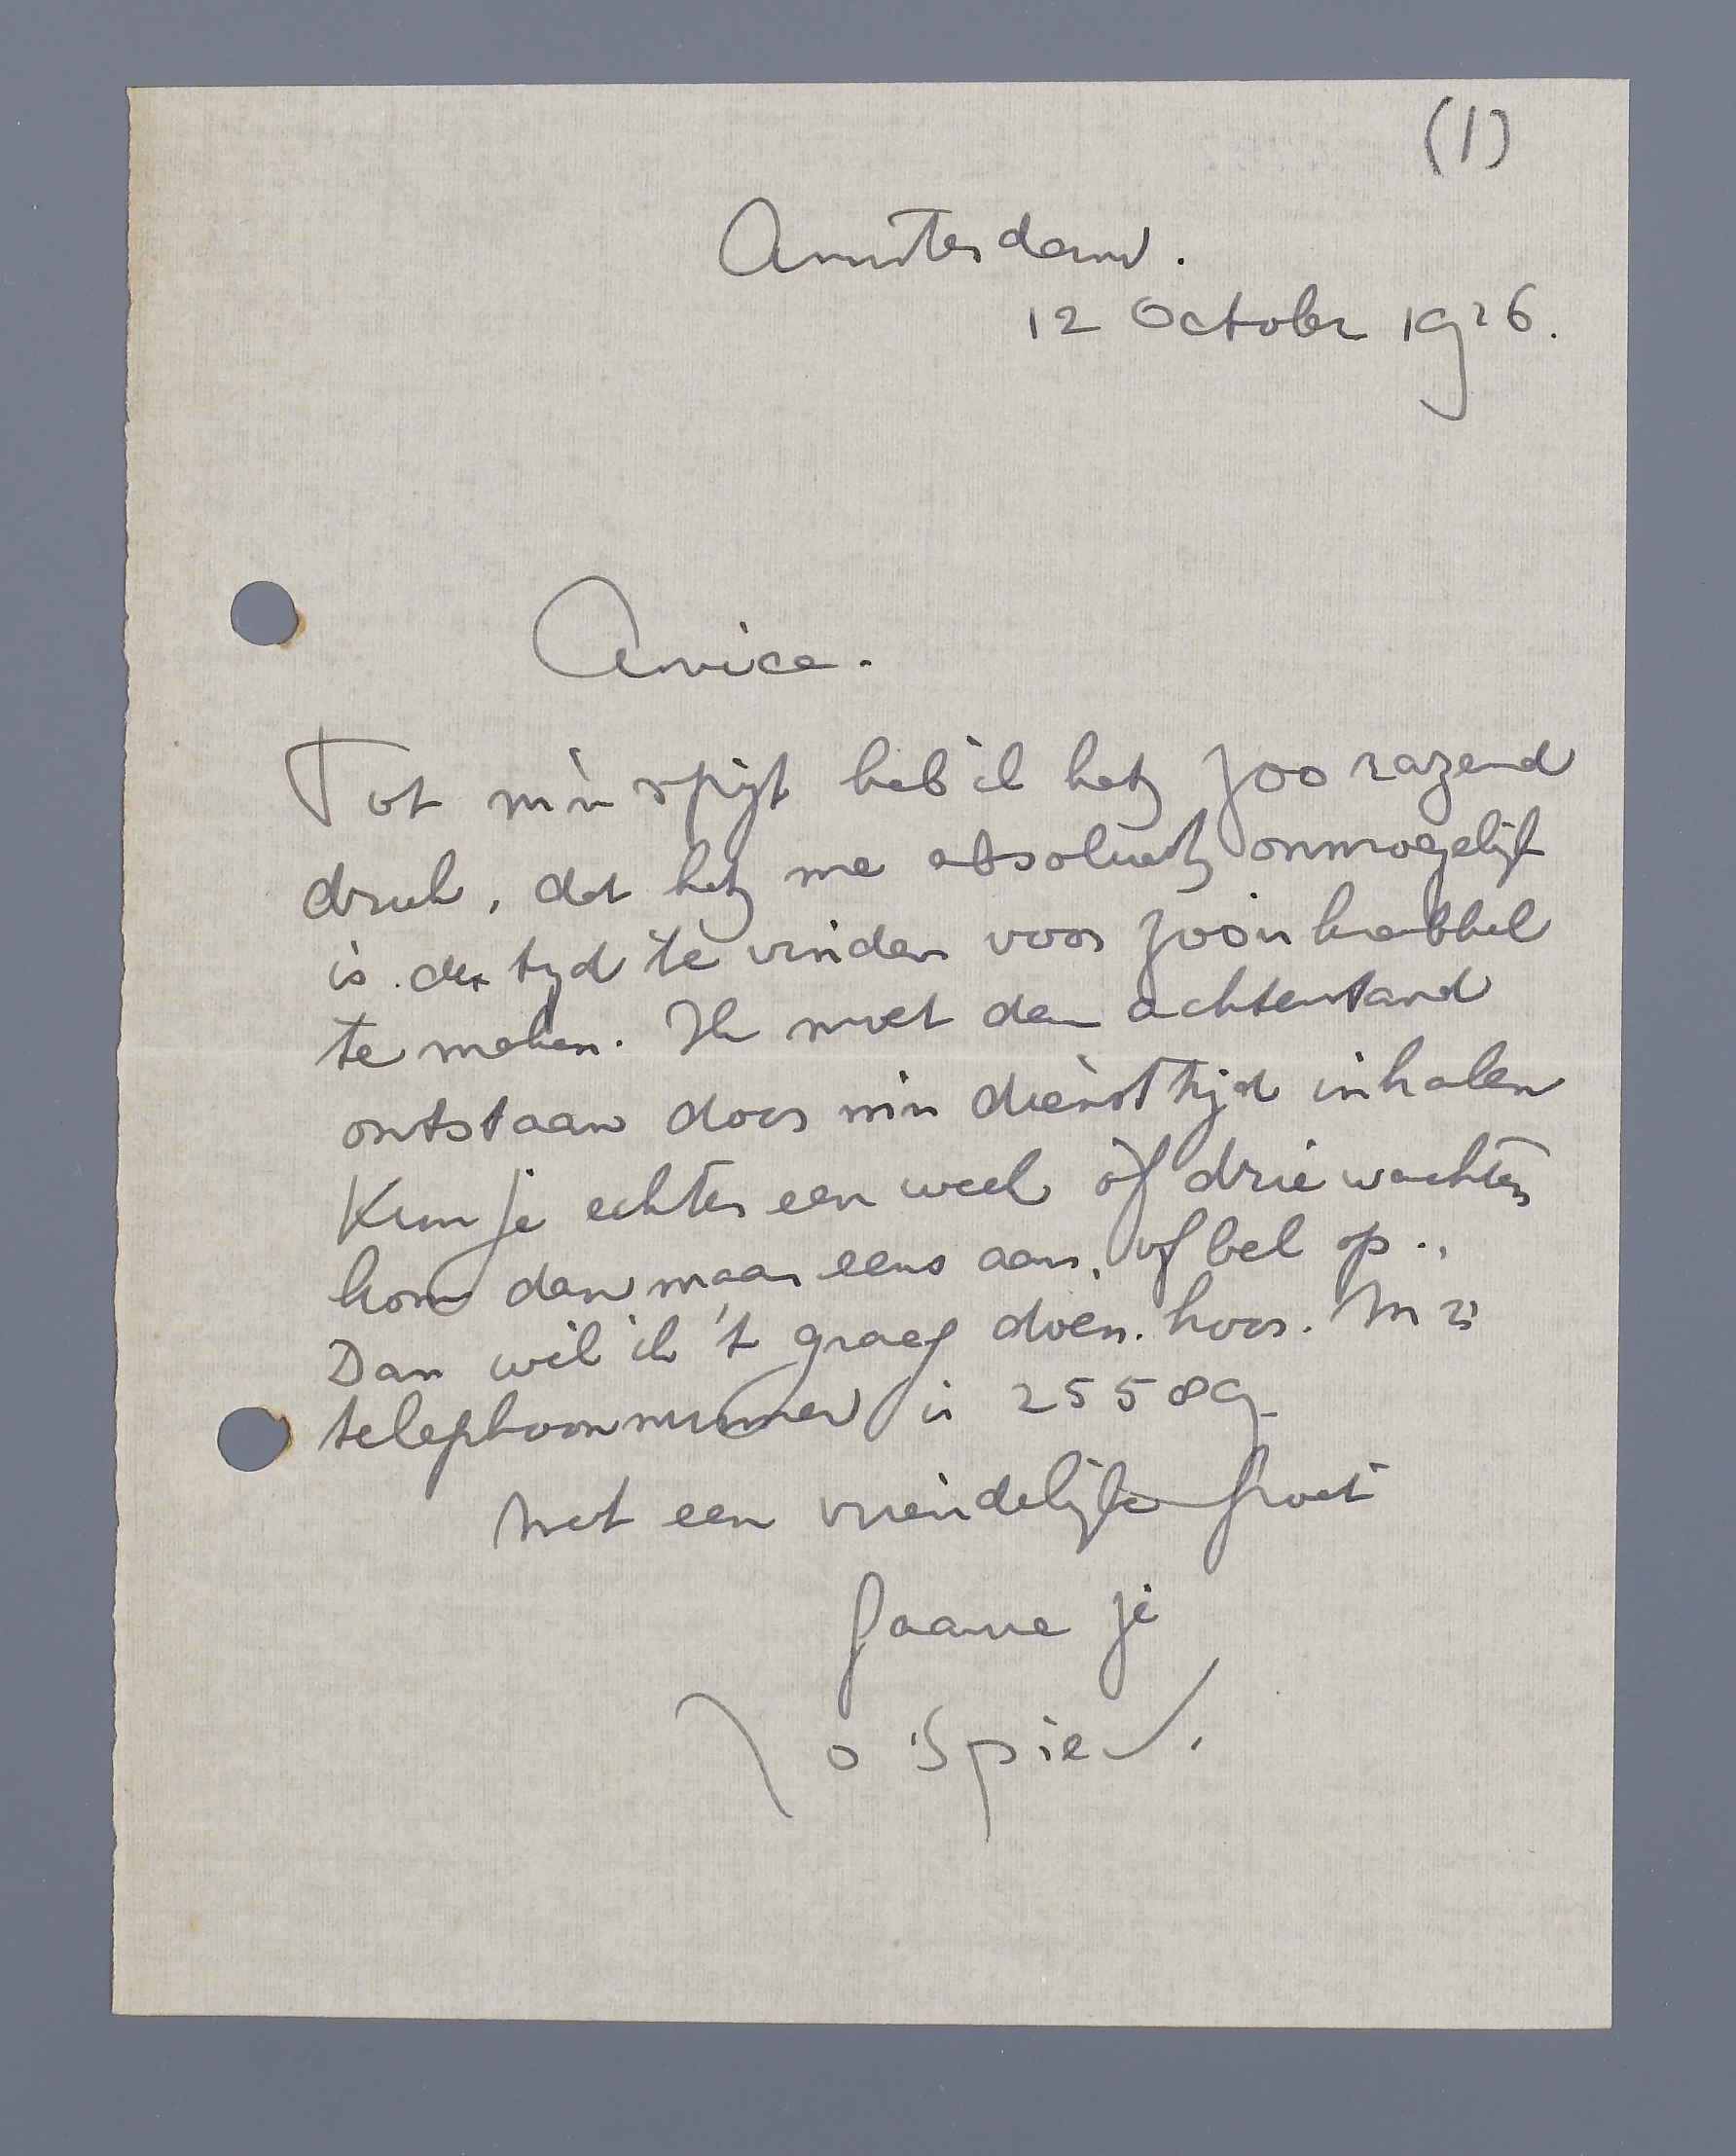 (1)
Amsterdam.
12 October 1926.
Amice.
Tot m'n spijt heb ik het zoo razend
druk, dat het me absoluut onmogelijk
is de tijd te vinden voor zoo'n krabbel
te maken. Ik moet den achterstand
ontstaan door m'n diensttijd inhalen
Kun je echter een week òf drie wachten
kom dan maar eens aan, of bel op.,
Dan wil ik 't graag doen. hoor. M'n
telephoonnummer is 25589
Met een vriendelijke groet
gaarne je
Jo Spier.